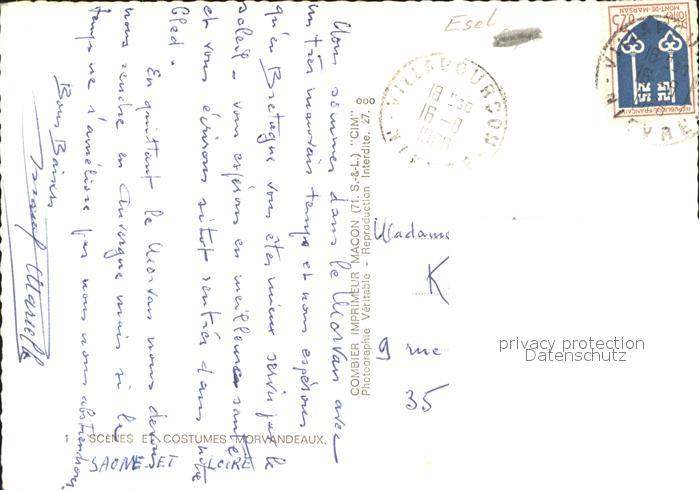 Esel
Nous sommes dans le Morvan avec
un très mauvais temps et nous espérons
qu'en Bretagne vous êtes mieux servis par le
soleil - vous espérons en meilleure santé
et vous écrirons sitôt rentrés dans notre
Cled.
En quittant le Morvan nous devons
nous rendre en Auvergne mais si le
temps ne s'améliore pas nous nous abstiendrons
Bons Baisers
COMBIER IMPRIMEUR MACON (71. S.-&-L.) "CIM"
Photographie Véritable - Reproduction Interdite. 27.
VILLAPOURÇON
18 H30
16-8
NIÈVRE
RÉPUBLIQUE FRANÇAISE
MONT-DE-MARSAN
0,25
Madame
K
9 rue
35
privacy protection
Datenschutz
1 SCÈNES ET COSTUMES MORVANDEAUX.
SAONE ET LOIRE